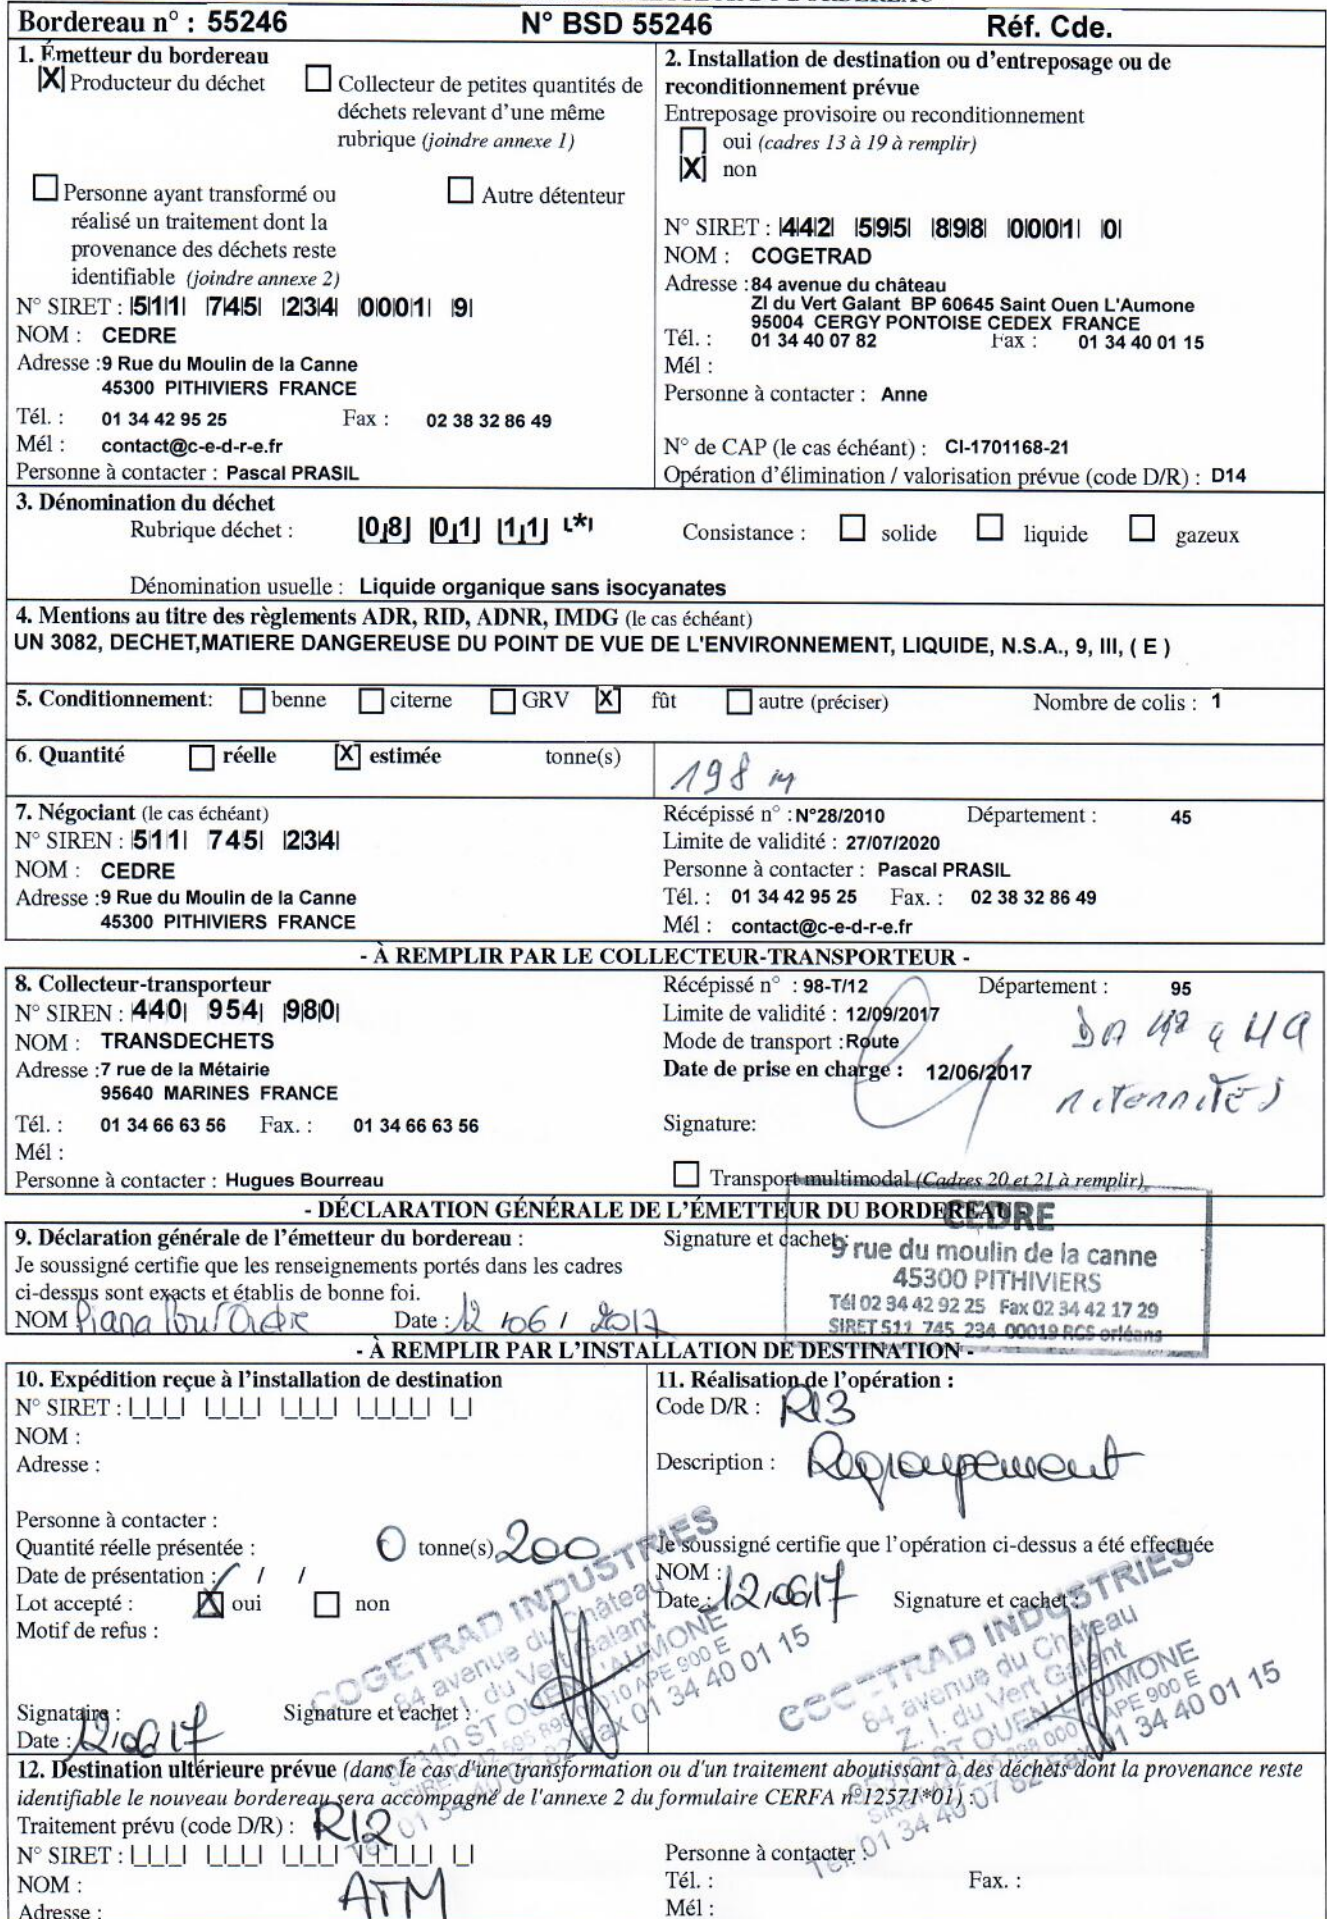 Bordereau n° : 55246 N° BSD 55246 Réf. Cde.
1. Émetteur du bordereau
X Producteur du déchet
Collecteur de petites quantités de
déchets relevant d'une même
rubrique (joindre annexe 1)
Personne ayant transformé ou
réalisé un traitement dont la
provenance des déchets reste
identifiable (joindre annexe 2)
Autre détenteur
N° SIRET : 511 745 234 0001 9
NOM : CEDRE
Adresse : 9 Rue du Moulin de la Canne
45300 PITHIVIERS FRANCE
Tél. : 01 34 42 95 25 Fax : 02 38 32 86 49
Mél : contact@c-e-d-r-e.fr
Personne à contacter : Pascal PRASIL
2. Installation de destination ou d'entreposage ou de
reconditionnement prévue
Entreposage provisoire ou reconditionnement
oui (cadres 13 à 19 à remplir)
X non
N° SIRET : 442 595 898 0001 0
NOM : COGETRAD
Adresse : 84 avenue du château
ZI du Vert Galant BP 60645 Saint Ouen L'Aumone
95004 CERGY PONTOISE CEDEX FRANCE
Tél. : 01 34 40 07 82 Fax : 01 34 40 01 15
Mél :
Personne à contacter : Anne
N° de CAP (le cas échéant) : CI-1701168-21
Opération d'élimination / valorisation prévue (code D/R) : D14
3. Dénomination du déchet
Rubrique déchet : 08 01 11 * Consistance : solide liquide gazeux
Dénomination usuelle : Liquide organique sans isocyanates
4. Mentions au titre des règlements ADR, RID, ADNR, IMDG (le cas échéant)
UN 3082, DECHET,MATIERE DANGEREUSE DU POINT DE VUE DE L'ENVIRONNEMENT, LIQUIDE, N.S.A., 9, III, ( E )
5. Conditionnement: benne citerne GRV X fût autre (préciser) Nombre de colis : 1
6. Quantité réelle X estimée tonne(s) 198
7. Négociant (le cas échéant)
N° SIREN : 511 745 234
NOM : CEDRE
Adresse : 9 Rue du Moulin de la Canne
45300 PITHIVIERS FRANCE
Récépissé n° : N°28/2010 Département : 45
Limite de validité : 27/07/2020
Personne à contacter : Pascal PRASIL
Tél. : 01 34 42 95 25 Fax. : 02 38 32 86 49
Mél : contact@c-e-d-r-e.fr
- À REMPLIR PAR LE COLLECTEUR-TRANSPORTEUR -
8. Collecteur-transporteur
N° SIREN : 440 954 980
NOM : TRANSDECHETS
Adresse : 7 rue de la Métairie
95640 MARINES FRANCE
Tél. : 01 34 66 63 56 Fax. : 01 34 66 63 56
Mél :
Personne à contacter : Hugues Bourreau
Récépissé n° : 98-T/12 Département : 95
Limite de validité : 12/09/2017
Mode de transport : Route
Date de prise en charge : 12/06/2017
Signature:
Transport multimodal (Cadres 20 et 21 à remplir)
- DÉCLARATION GÉNÉRALE DE L'ÉMETTEUR DU BORDEREAU
9. Déclaration générale de l'émetteur du bordereau :
Je soussigné certifie que les renseignements portés dans les cadres
ci-dessus sont exacts et établis de bonne foi.
NOM Date : 12 / 06 / 2017
Signature et cachet :
CEDRE
9 rue du moulin de la canne
45300 PITHIVIERS
Tél 02 34 42 92 25 Fax 02 34 42 17 29
SIRET 511 745 234 00019 RCS orléans
- À REMPLIR PAR L'INSTALLATION DE DESTINATION -
10. Expédition reçue à l'installation de destination
N° SIRET :
NOM :
Adresse :
Personne à contacter :
Quantité réelle présentée : 0 tonne(s) 200
Date de présentation : / /
Lot accepté : X oui non
Motif de refus :
Signataire : Signature et cachet :
Date : 12/06/17
COGETRAD INDUSTRIES
84 avenue du Château
Z.I. du Vert Galant
11. Réalisation de l'opération :
Code D/R : R13
Description : Regroupement
Je soussigné certifie que l'opération ci-dessus a été effectuée
NOM :
Date : 12/06/17 Signature et cachet :
COGETRAD INDUSTRIES
84 avenue du Château
Z.I. du Vert Galant
12. Destination ultérieure prévue (dans le cas d'une transformation ou d'un traitement aboutissant à des déchets dont la provenance reste
identifiable le nouveau bordereau sera accompagné de l'annexe 2 du formulaire CERFA n°12571*01) :
Traitement prévu (code D/R) : R12
N° SIRET :
NOM : ATM
Adresse :
Personne à contacter :
Tél. : Fax. :
Mél :